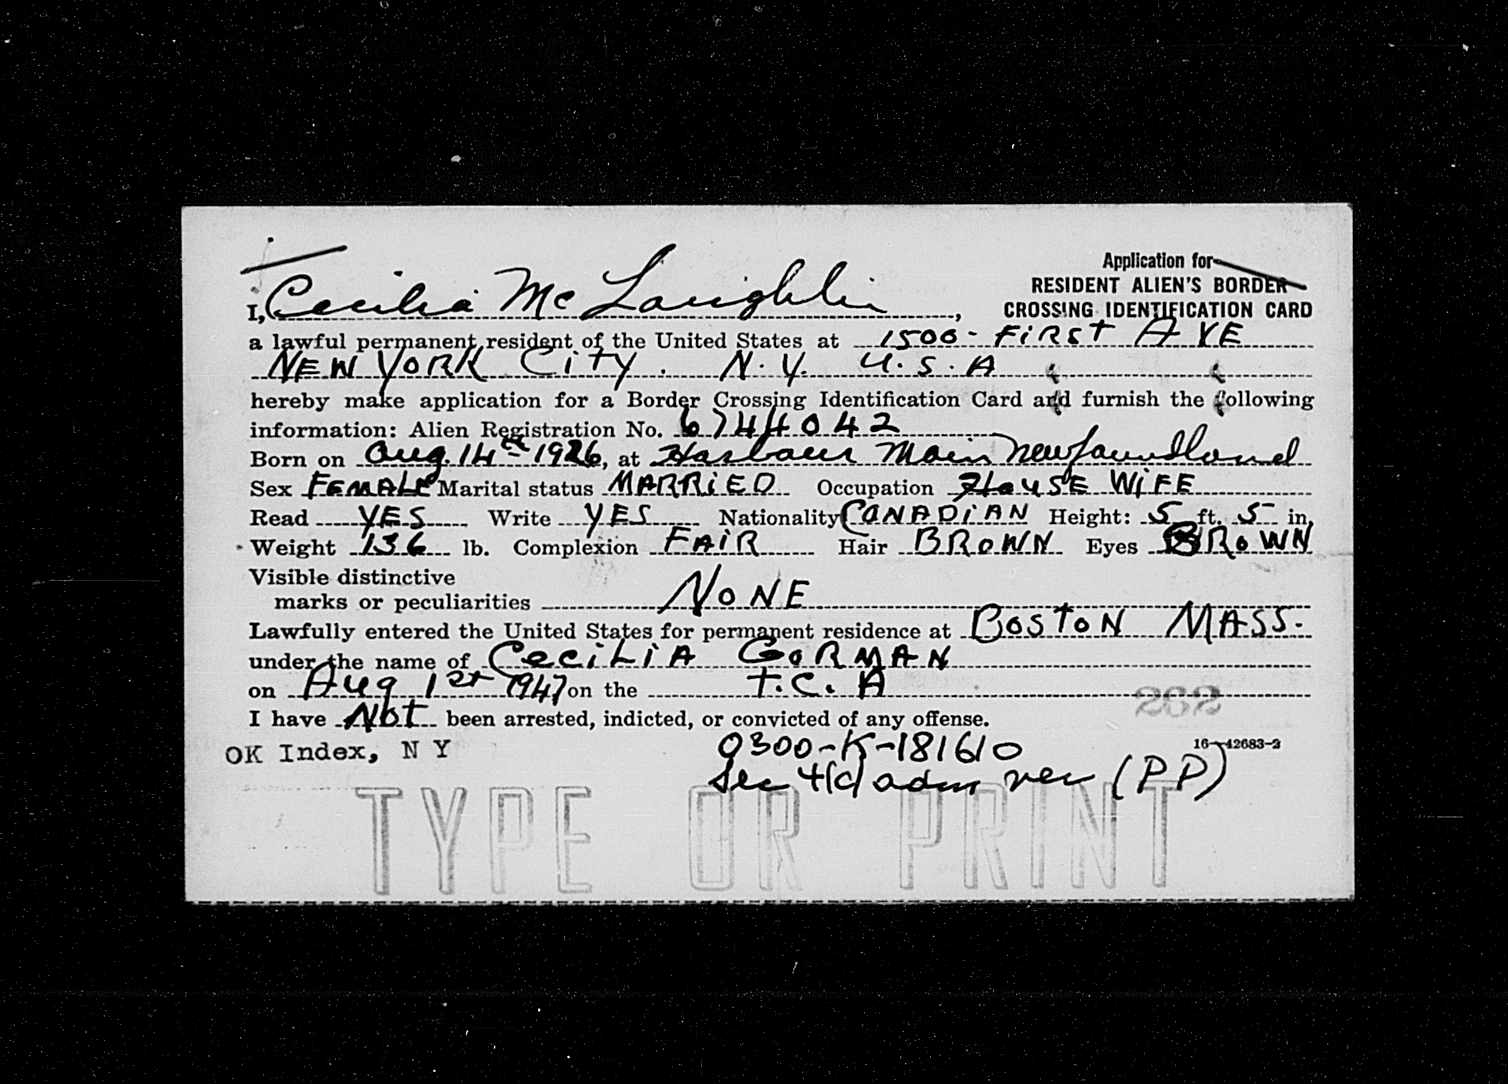 Application for
RESIDENT ALIEN'S BORDER
CROSSING IDENTIFICATION CARD
I, Cecilia Mc Laughlin,
a lawful permanent resident of the United States at 1500 - FIRST AVE
NEW YORK CITY. N.Y. U.S.A
hereby make application for a Border Crossing Identification Card and furnish the following
information: Alien Registration No. 6744042
Born on Aug. 14th 1926, at Harbour Main Newfoundland
Sex FEMALE Marital status MARRIED Occupation HOUSE WIFE
Read YES Write YES Nationality CANADIAN Height: 5 ft. 5 in.
Weight 136 lb. Complexion FAIR Hair BROWN Eyes BROWN
Visible distinctive
marks or peculiarities NONE
Lawfully entered the United States for permanent residence at BOSTON MASS.
under the name of CECILIA GORMAN
on Aug 1st 1947 on the T.C.A
I have Not been arrested, indicted, or convicted of any offense.
OK Index, N Y
0300-K-181610
16-42683-2
Sec 4(c) adm ver (PP)
TYPE OR PRINT